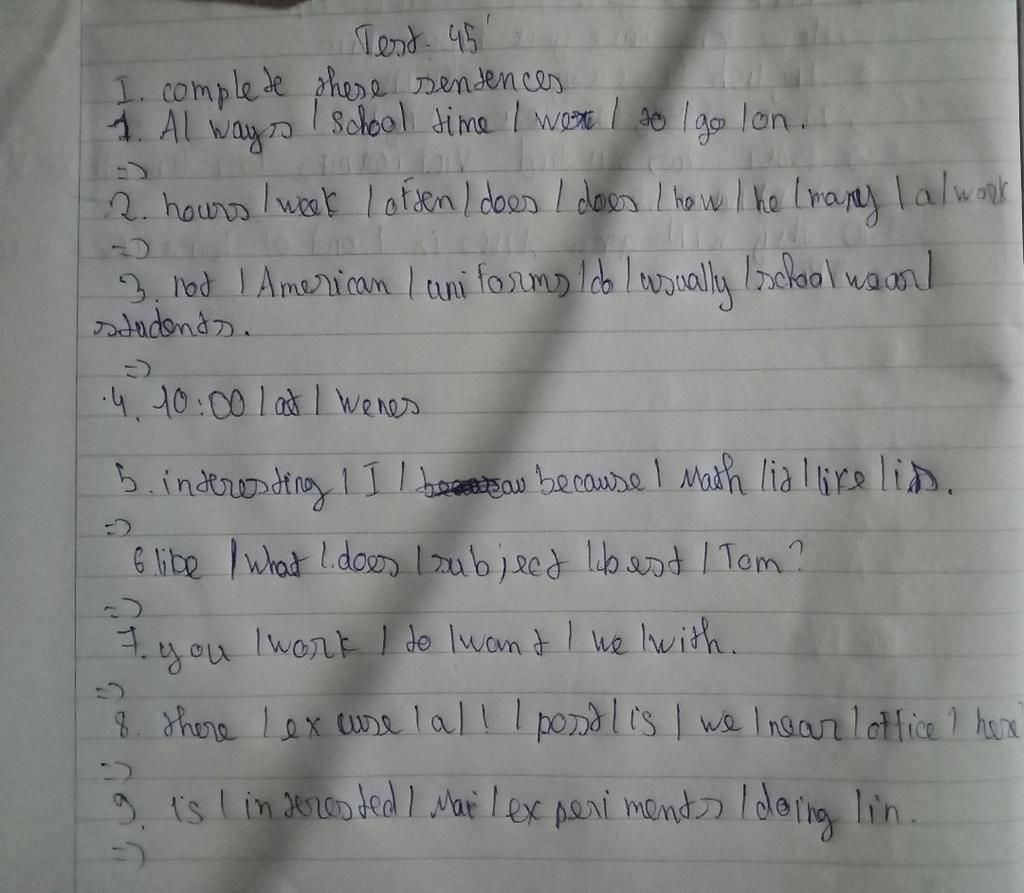 Test. 45'
I. complete these sentences
1. Always / school time / were / to / go / on.
=>
2. hours / week / often / does / does / how / he / many / a / work
=>
3. not / American / uniforms / do / usually / school wear /
students.
=>
4. 10:00 / at /
5. interesting / I / because / Math / is / like / it is.
=>
6. like / what / does / subject / best / Tom?
=>
7. you / work / to / want / we / with.
=>
8. there / excuse / a / ! / post / is / we / near / office / here
=>
9. is / interested / Mai / experiments / doing / in.
=>